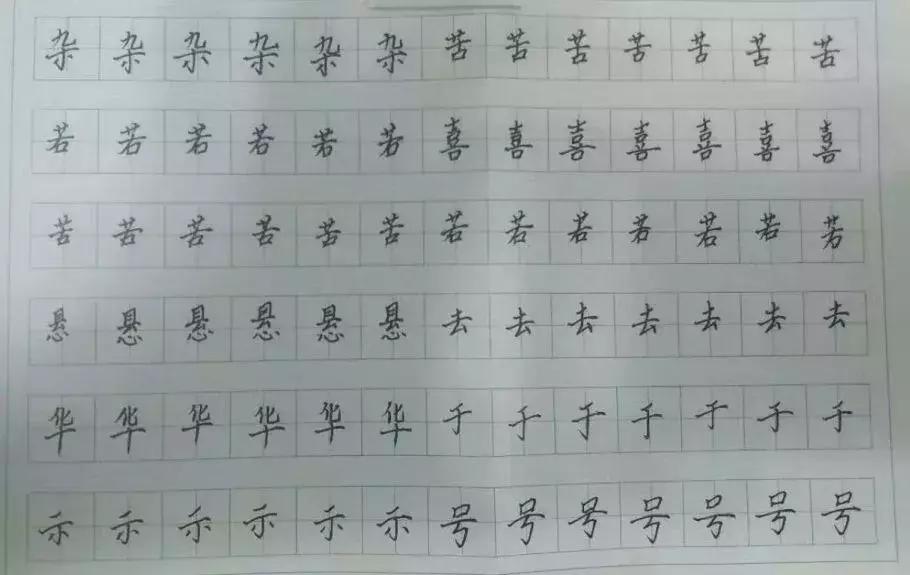 杂杂杂杂杂杂苦苦苦苦苦苦苦
若若若若若若喜喜喜喜喜喜喜
苦苦苦苦苦苦若若若若若若芳
悬悬悬悬悬悬去去去去去去去
华华华华华华于于于于于于于
示示示示示示号号号号号号号